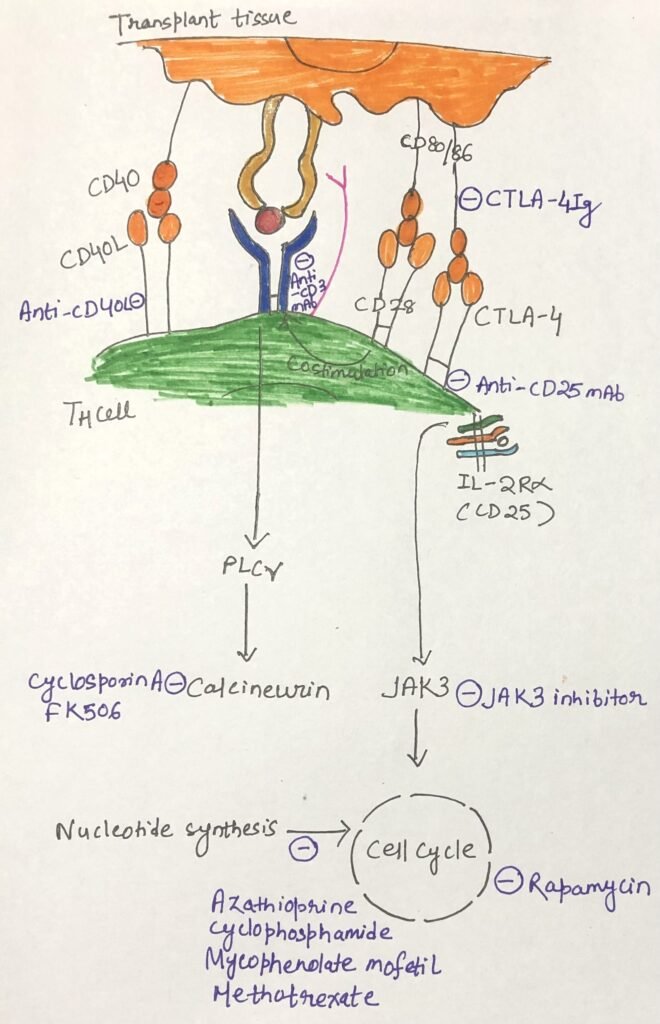 Transplant tissue
CD80/86
CD40
⊖CTLA-4Ig
CD40L
⊖
Anti
-CD3
mAb
Anti-CD40L⊖
CD28
CTLA-4
Costimulation
⊖ Anti-CD25 mAb
TH Cell
IL-2Rα
(CD25)
PLCγ
Cyclosporin A⊖Calcineurin
FK506
JAK3⊖JAK3 inhibitor
Nucleotide synthesis
⊖
Cell cycle
⊖Rapamycin
Azathioprine
Cyclophosphamide
Mycophenolate mofetil
Methotrexate